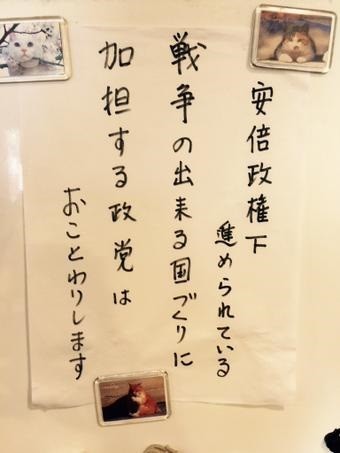 安倍政権下
進められている
戦争の出来る国づくりに
加担する政党は
おことわりします